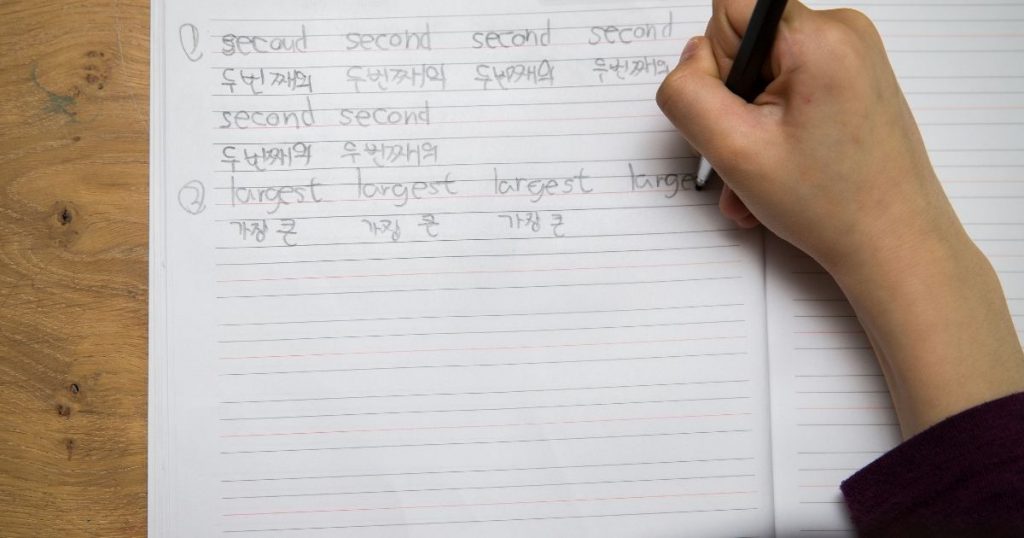 ① second second second second
두번째의 두번째의 두번째의 두번째의
second second
두번째의 두번째의
② largest largest largest large
가장 큰 가장 큰 가장 큰